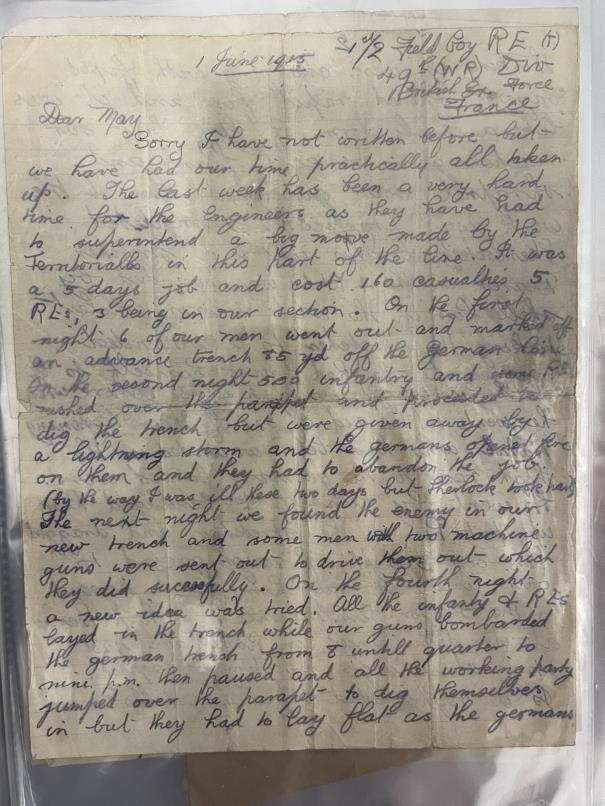 1 June 1915
2/1/2 Field Coy R.E. (T)
49th (W R) Div
British Ex. Force
France
Dear May
Sorry I have not written before but
we have had our time practically all taken
up. The last week has been a very hard
time for the Engineers as they have had
to superintend a big move made by the
Territorialls in this part of the line. It was
a 5 days job and cost 160 casualties 5
REs, 3 being in our section. On the first
night 6 of our men went out and marked off
an advance trench 85 yd off the German line
On the second night 500 infantry and some R.E.
rushed over the parapet and proceeded to
dig the trench but were given away by
a lightning storm and the germans opened fire
on them and they had to abandon the job.
(by the way I was ill these two days but Sherlock took part)
The next night we found the enemy in our
new trench and some men with two machine
guns were sent out to drive them out which
they did sucessfully. On the fourth night
a new idea was tried. All the infantry & REs
layed in the trench while our guns bombarded
the german trench from 8 untill quarter to
nine p.m. then paused and all the working party
jumped over the parapet to dig themselves
in but they had to lay flat as the germans